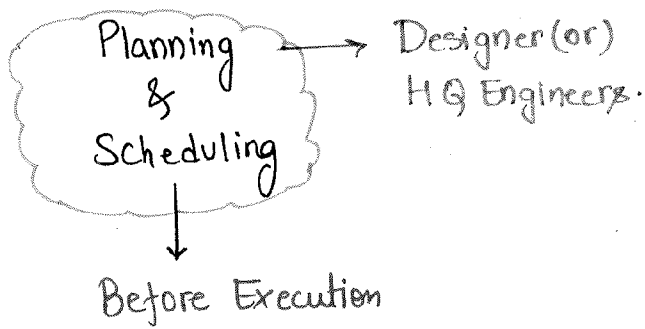 Planning
&
Scheduling
Designer (or)
HQ Engineers.
Before Execution